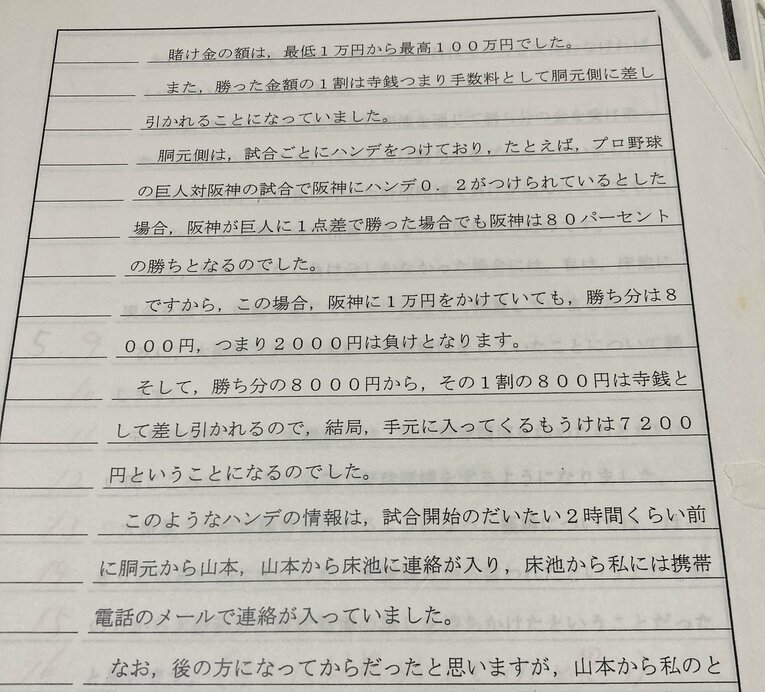 賭け金の額は，最低１万円から最高１００万円でした。
また，勝った金額の１割は寺銭つまり手数料として胴元側に差し
引かれることになっていました。
胴元側は，試合ごとにハンデをつけており，たとえば，プロ野球
の巨人対阪神の試合で阪神にハンデ０．２がつけられているとした
場合，阪神が巨人に１点差で勝った場合でも阪神は８０パーセント
の勝ちとなるのでした。
ですから，この場合，阪神に１万円をかけていても，勝ち分は８
０００円，つまり２０００円は負けとなります。
そして，勝ち分の８０００円から，その１割の８００円は寺銭と
して差し引かれるので，結局，手元に入ってくるもうけは７２００
円ということになるのでした。
このようなハンデの情報は，試合開始のだいたい２時間くらい前
に胴元から山本，山本から床池に連絡が入り，床池から私には携帯
電話のメールで連絡が入っていました。
なお，後の方になってからだったと思いますが，山本から私のと